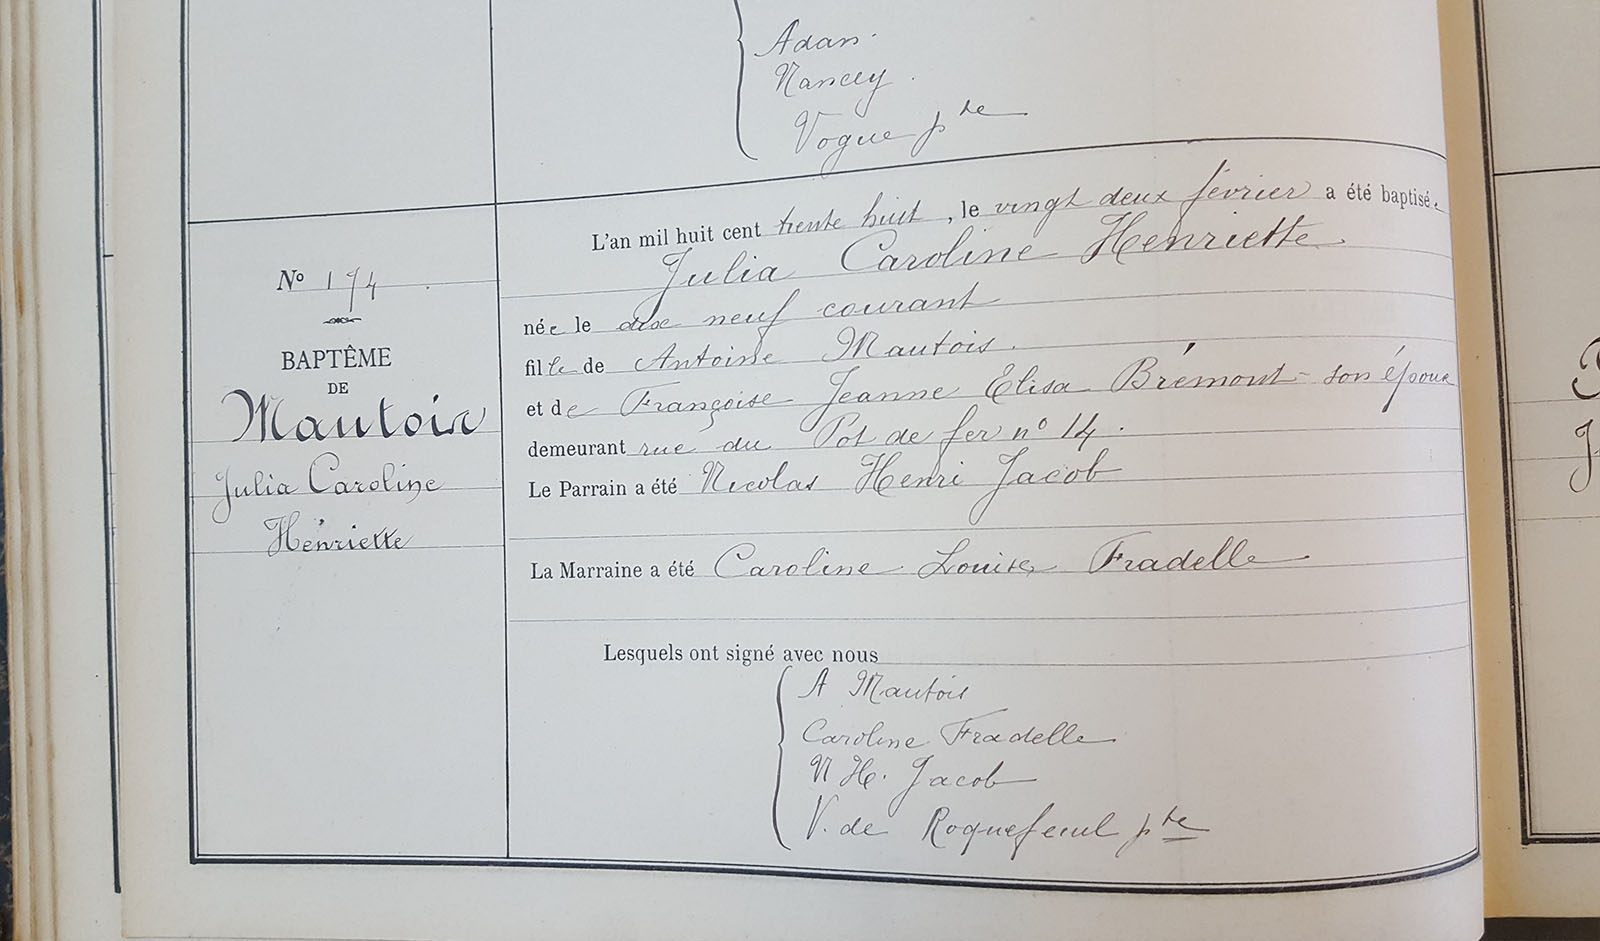 Adan.
Nancey.
Vogue ptre
Nº 174.
BAPTÊME
DE
Mautois
Julia Caroline
Henriette
L'an mil huit cent trente huit, le vingt deux février a été baptisée
Julia Caroline Henriette
née le dix neuf courant
fille de Antoine Mautois.
et de Françoise Jeanne Élisa Brémont son épouse
demeurant rue du Pot de fer nº 14.
Le Parrain a été Nicolas Henri Jacob
La Marraine a été Caroline Louise Fradelle
Lesquels ont signé avec nous
A Mautois
Caroline Fradelle
N H. Jacob
V. de Roquefeuil ptre